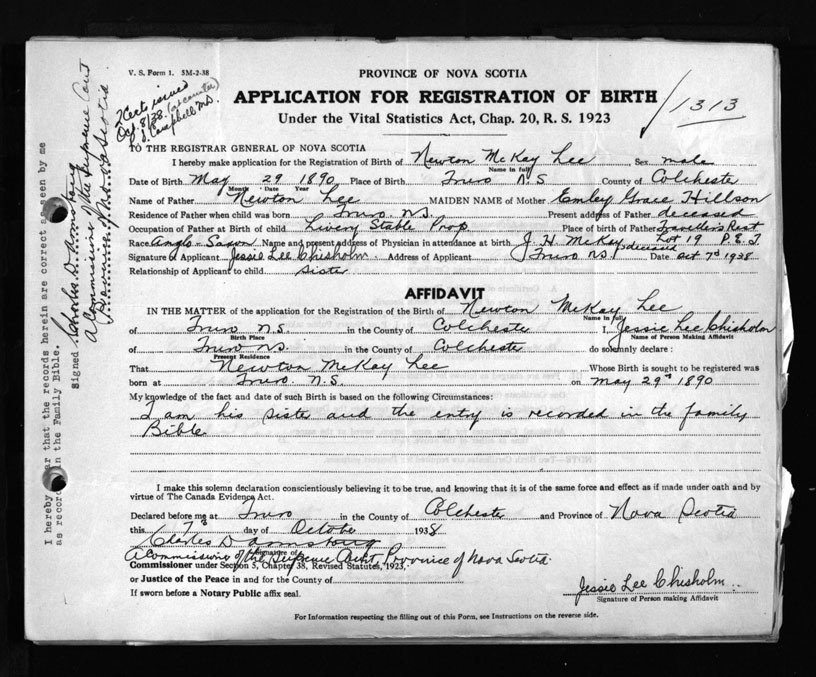 V. S. Form 1. 3M-2-38
PROVINCE OF NOVA SCOTIA
APPLICATION FOR REGISTRATION OF BIRTH
Under the Vital Statistics Act, Chap. 20, R. S. 1923
1313
2 Certs issued
Oct. 8/38. (at counter)
D. Campbell M.D.
TO THE REGISTRAR GENERAL OF NOVA SCOTIA
I hereby make application for the Registration of Birth of Newton McKay Lee Sex male
Name in full
Date of Birth May 29 1890 Place of Birth Truro N.S County of Colchester
Month Date Year
Name of Father Newton Lee MAIDEN NAME of Mother Emley Grace Hillson
Residence of Father when child was born Truro N.S. Present address of Father deceased
Occupation of Father at Birth of child Livery Stable Prop. Place of birth of Father Travellers Rest
Lot 19 P.E.I
Race Anglo-Saxon Name and present address of Physician in attendance at birth J. H. McKay deceased
Signature of Applicant Jessie Lee Chisholm. Address of Applicant Truro N.S. Date Oct 7th 1938
Relationship of Applicant to child sister
AFFIDAVIT
IN THE MATTER of the application for the Registration of the Birth of Newton McKay Lee
Name in full
of Truro N.S. in the County of Colchester I, Jessie Lee Chisholm
Birth Place Name of Person Making Affidavit
of Truro N.S. in the County of Colchester do solemnly declare :
Present Residence
That Newton McKay Lee Whose Birth is sought to be registered was
born at Truro. N.S. on May 29th 1890
My knowledge of the fact and date of such Birth is based on the following Circumstances:
I am his sister and the entry is recorded in the family
Bible
I make this solemn declaration conscientiously believing it to be true, and knowing that it is of the same force and effect as if made under oath and by
virtue of The Canada Evidence Act.
Declared before me at Truro in the County of Colchester and Province of Nova Scotia
this 7th day of October 1938
Charles D Armstrong
Signature of
A Commissioner of the Supreme Court Province of Nova Scotia.
Commissioner under Section 5, Chapter 38, Revised Statutes, 1923.
or Justice of the Peace in and for the County of
If sworn before a Notary Public affix seal.
Jessie Lee Chisholm.
Signature of Person making Affidavit
For Information respecting the filling out of this Form, see Instructions on the reverse side.
I hereby swear that the records herein are correct as seen by me
as recorded in the Family Bible.
Signed Charles D. Armstrong
A Commissioner of the Supreme Court
Province of Nova Scotia.